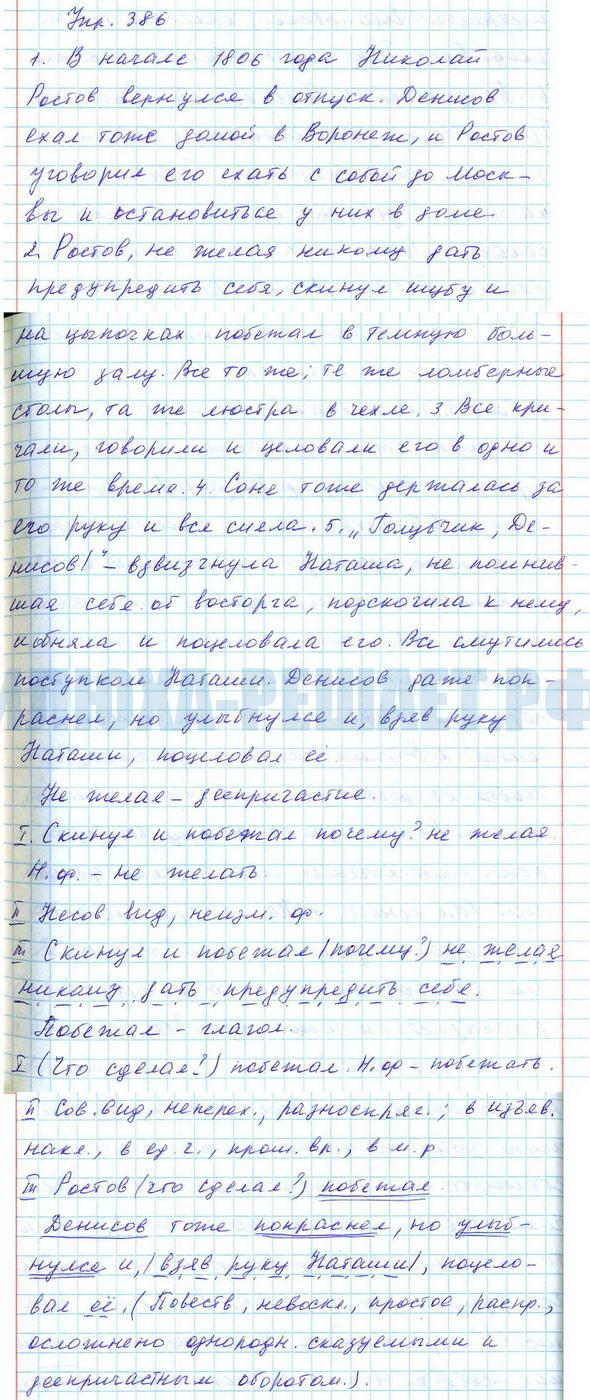 Упр. 386
1. В начале 1806 года Николай
Ростов вернулся в отпуск. Денисов
ехал тоже домой в Воронеж, и Ростов
уговорил его ехать с собой до Моск-
вы и остановиться у них в доме.
2. Ростов, не желая никому дать
предупредить себя, скинул шубу и
на цыпочках побежал в темную боль-
шую залу. Все то же; те же ломберные
столы, та же люстра в чехле. 3 Все кри-
чали, говорили и целовали его в одно и
то же время. 4. Соня тоже держалась за
его руку и вся сияла. 5. „Голубчик, Де-
нисов!" – взвизгнула Наташа, не помнив-
шая себя от восторга, подскочила к нему,
обняла и поцеловала его. Все смутились
поступком Наташи. Денисов даже пок-
раснел, но улыбнулся и, взяв руку
Наташи, поцеловал её.
Не желая – деепричастие.
I. Скинул и побежал почему? не желая
Н.ф. – не желать.
II Несов вид, неизм. ф.
III Скинул и побежал (почему?) не желая
никому дать предупредить себя.
Побежал – глагол.
I (Что сделал?) побежал. Н.ф – побежать.
II Сов. вид, неперех., разноспряг.; в изъяв.
накл., в ед. ч., прош. вр., в м.р.
III Ростов (что сделал?) побежал.
Денисов тоже покраснел, но улыб-
нулся и, |взяв руку Наташи|, поцело-
вал её. (Повеств, невоскл., простое, распр.,
осложнено однородн. сказуемыми и
деепричастным оборотом.).